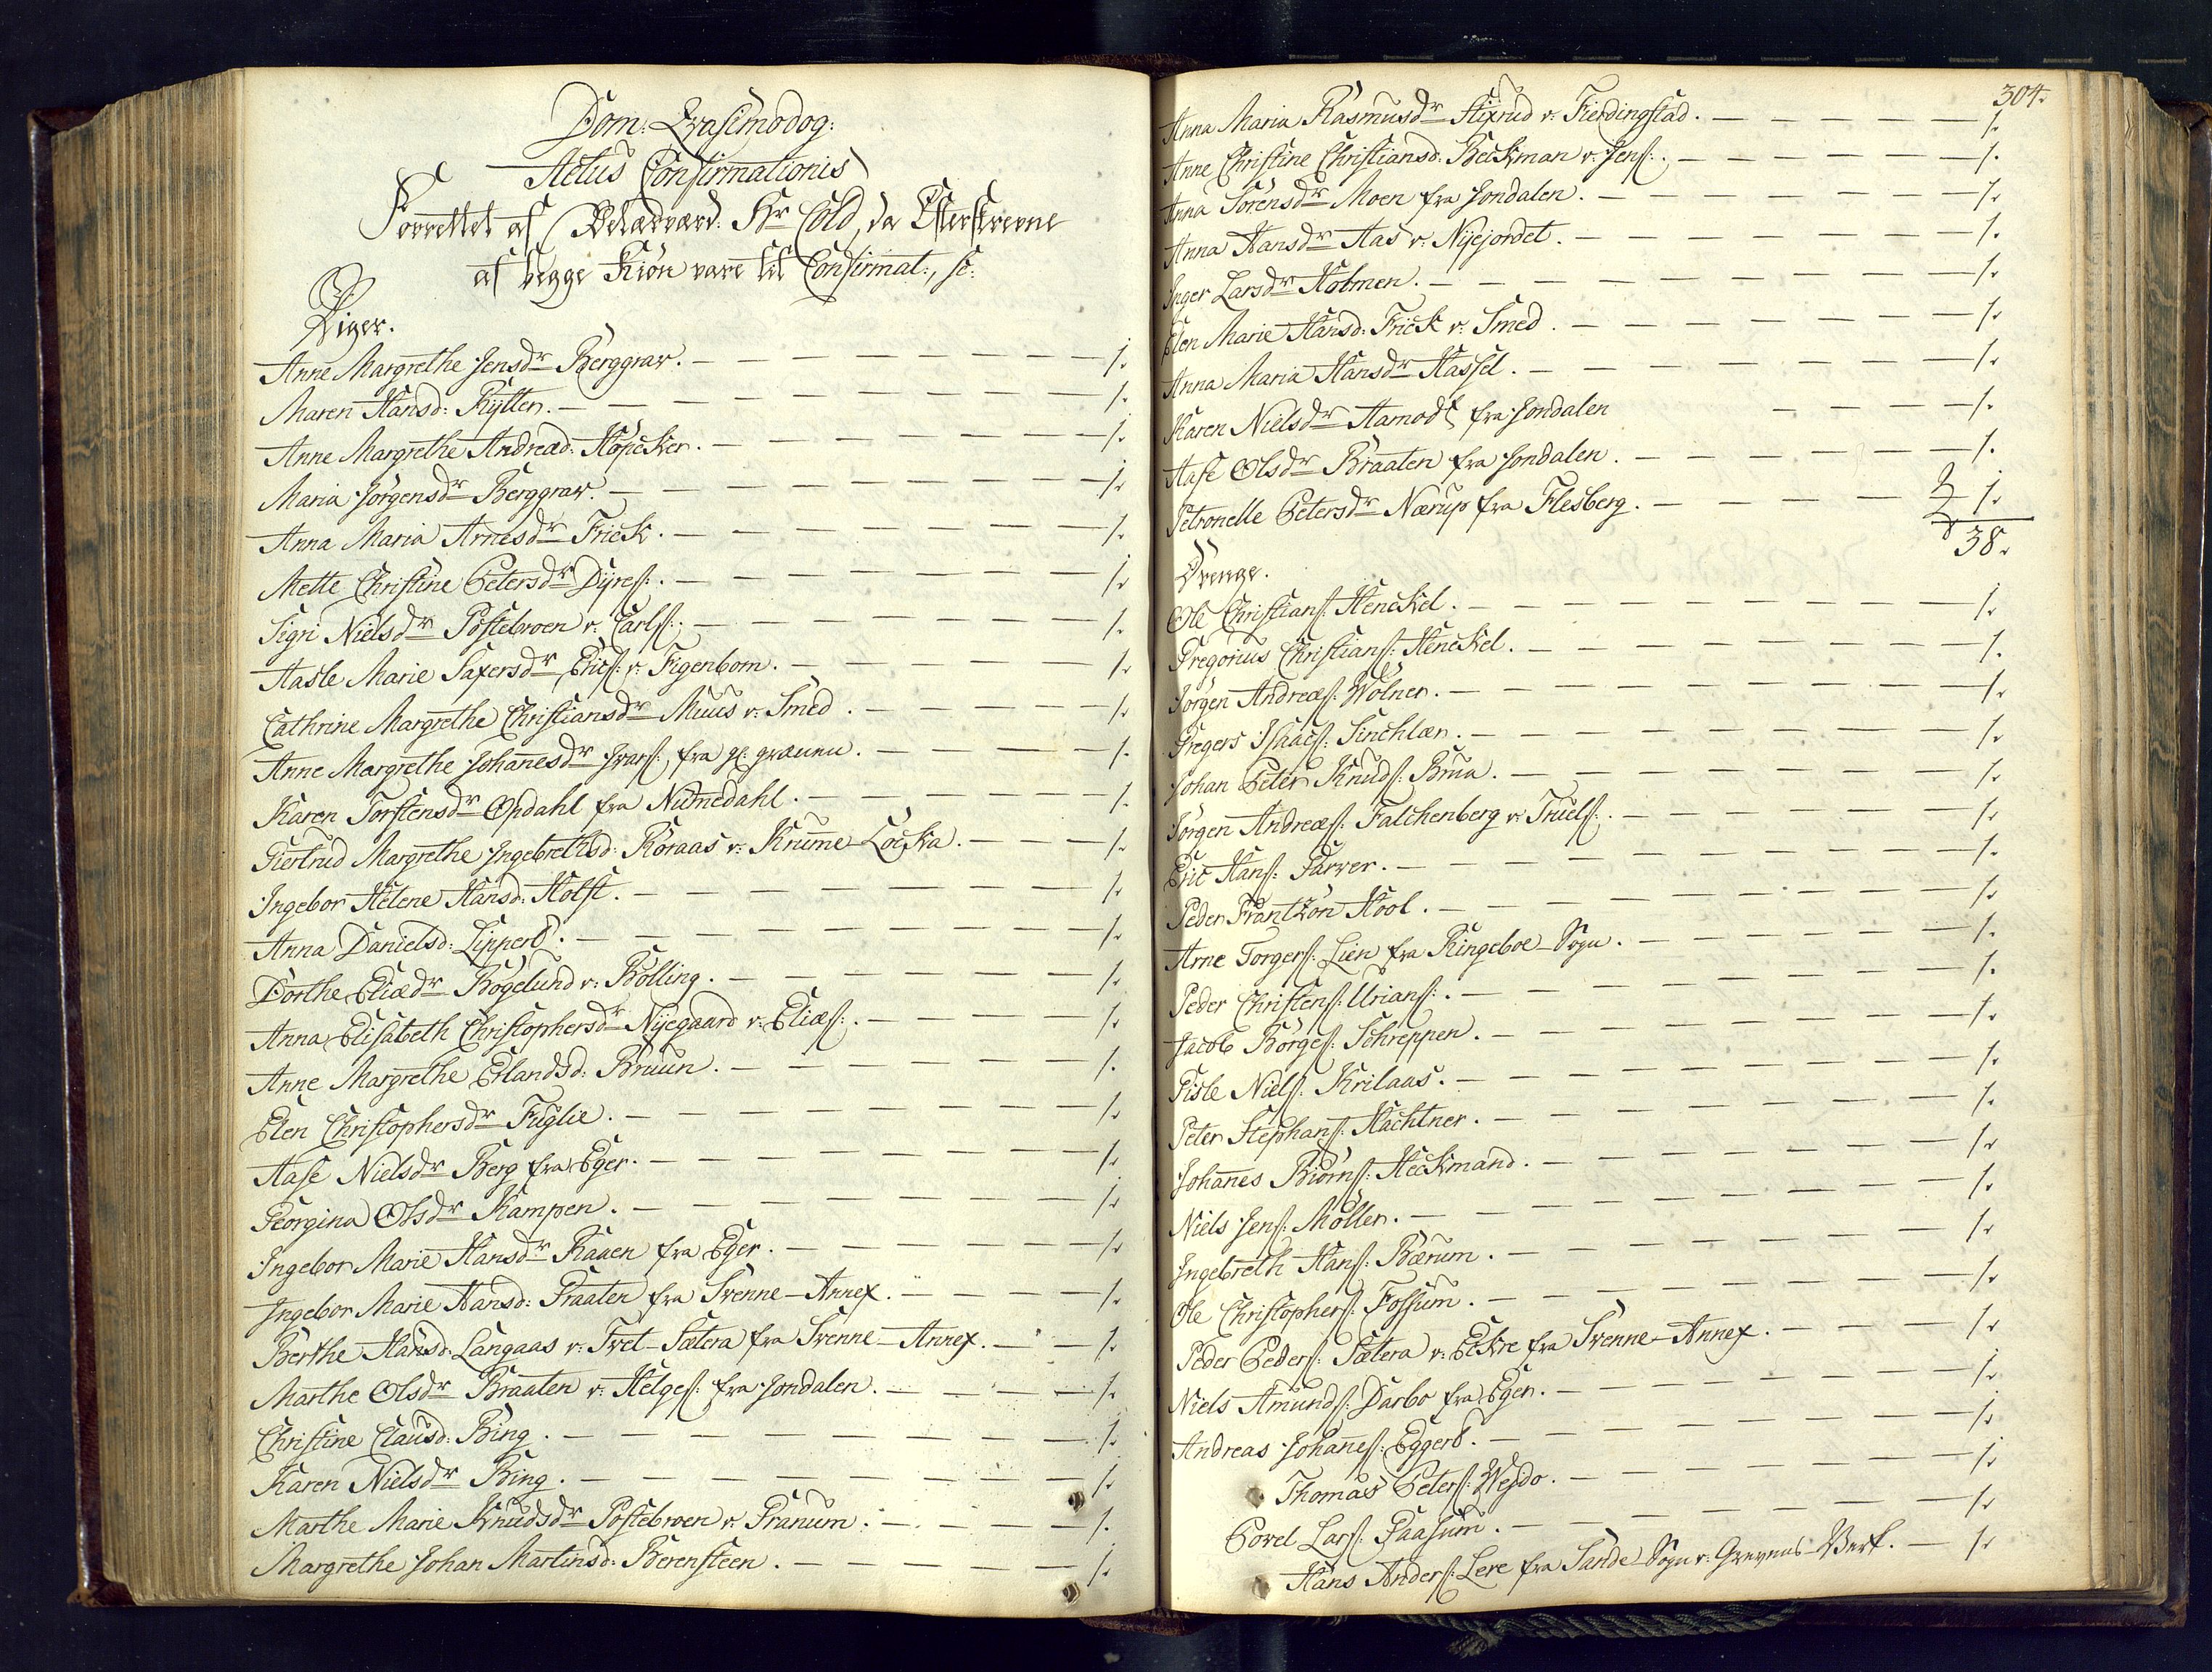 Dom: Qvasimodog:
Actus Confirmationis
Forrettet af Velærværd. Hr Cold, da Efterskrevne
af begge Kiøn vare til Confirmat:, sc:
Piger.
Anne Margrethe Jensdr Berggrav. — 1.
Maren Hansd: Rytter. — 1.
Anne Margrethe Andread: Höpcker. — 1.
Maria Jörgensdr Berggrav. — 1.
Anna Maria Arnesdr Frick. — 1.
Mette Christine Petersdr Dyres: — 1.
Sigri Nielsdr Postebroen v. Carls: — 1.
Aasle Marie Saxersdr Erics: v. Figenbom. — 1.
Cathrine Margrethe Christiansdr Muus v. Smed. — 1.
Anne Margrethe Johannesdr Ivars: fra gl: gruven. — 1.
Karen Torstensdr Opdahl fra Numedahl. — 1.
Giertrud Margrethe Ingebrethsd: Röraas v. Krumme-Löcka. — 1.
Ingebor Helene Hansd: Holst. — 1.
Anna Danielsd: Lippert. — 1.
Dorthe Eliædr Bögelund v. Bölling. — 1.
Anna Elisabeth Christophersdr Nyegaard v. Elias: — 1.
Anne Margrethe Erlandsd: Bruun. — 1.
Elen Christophersdr Fuglie. — 1.
Aase Nielsdr Berg fra Eger. — 1.
Georgina Olsdr Kampen. — 1.
Ingebor Marie Hansdr Raaen fra Eger. — 1.
Ingebor Marie Hansd: Braaten fra Svenne-Annex. — 1.
Berthe Hansd: Langaas v. Tvet-Sætera fra Svenne-Annex. — 1.
Marthe Olsdr Braaten v. Helges: fra Jondalen. — 1.
Christine Clausd: Bing. — 1.
Karen Nielsdr Bing. — 1.
Marthe Marie Knudsdr Postebroen v. Granum. — 1.
Margrethe Johan Martinsd: Berensteen. — 1.
304.
Anna Maria Rasmusdr Stixrud v. Fierdingstad. — 1.
Anne Christine Christiansd: Beckman v. Jens: — 1.
Anna Sörensdr Moen fra Jondalen. — 1.
Anna Hansdr Aas v. Nyejordet. — 1.
Inger Larsdr Holmen. — 1.
Elen Marie Hansd: Frick v. Smed. — 1.
Anna Maria Hansdr Hassel. — 1.
Karen Nielsdr Aamodt fra Jondalen — 1.
Aase Olsdr Braaten fra Jondalen. — 1.
Petronelle Petersdr Nærup fra Flesberg. — 1.
38.
Drenge.
Ole Christians: Henckel. — 1.
Gregorius Christians: Henckel. — 1.
Jörgen Andreæs: Wölner. — 1.
Gregers Isaacs: Sinchlær. — 1.
Johan Peter Knuds: Brua. — 1.
Jörgen Andreæs: Falchenberg v. Truels: — 1.
Eric Hans: Farver. — 1.
Peder Frantzön Hool. — 1.
Arne Torgers: Lien fra Ringeboe-Sogn. — 1.
Peder Christens: Urians: — 1.
Jacob Börges: Schreppen. — 1.
Gisle Niels: Krilaas. — 1.
Peter Stephans: Hächtner. — 1.
Johannes Biörns: Heckmand. — 1.
Niels Jens: Möller. — 1.
Ingebreth Hans: Bærum. — 1.
Ole Christophers: Fossum. — 1.
Peder Peders: Sætera v. Eckre fra Svenne-Annex. — 1.
Niels Amunds: Darbo fra Eger. — 1.
Andreas Johannes: Eggert. — 1.
Thomas Peters: Wejdo. — 1.
Povel Lars: Gaasum. — 1.
Hans Anders: Lere fra Sande-Sogn v. Grevens-Verk. — 1.